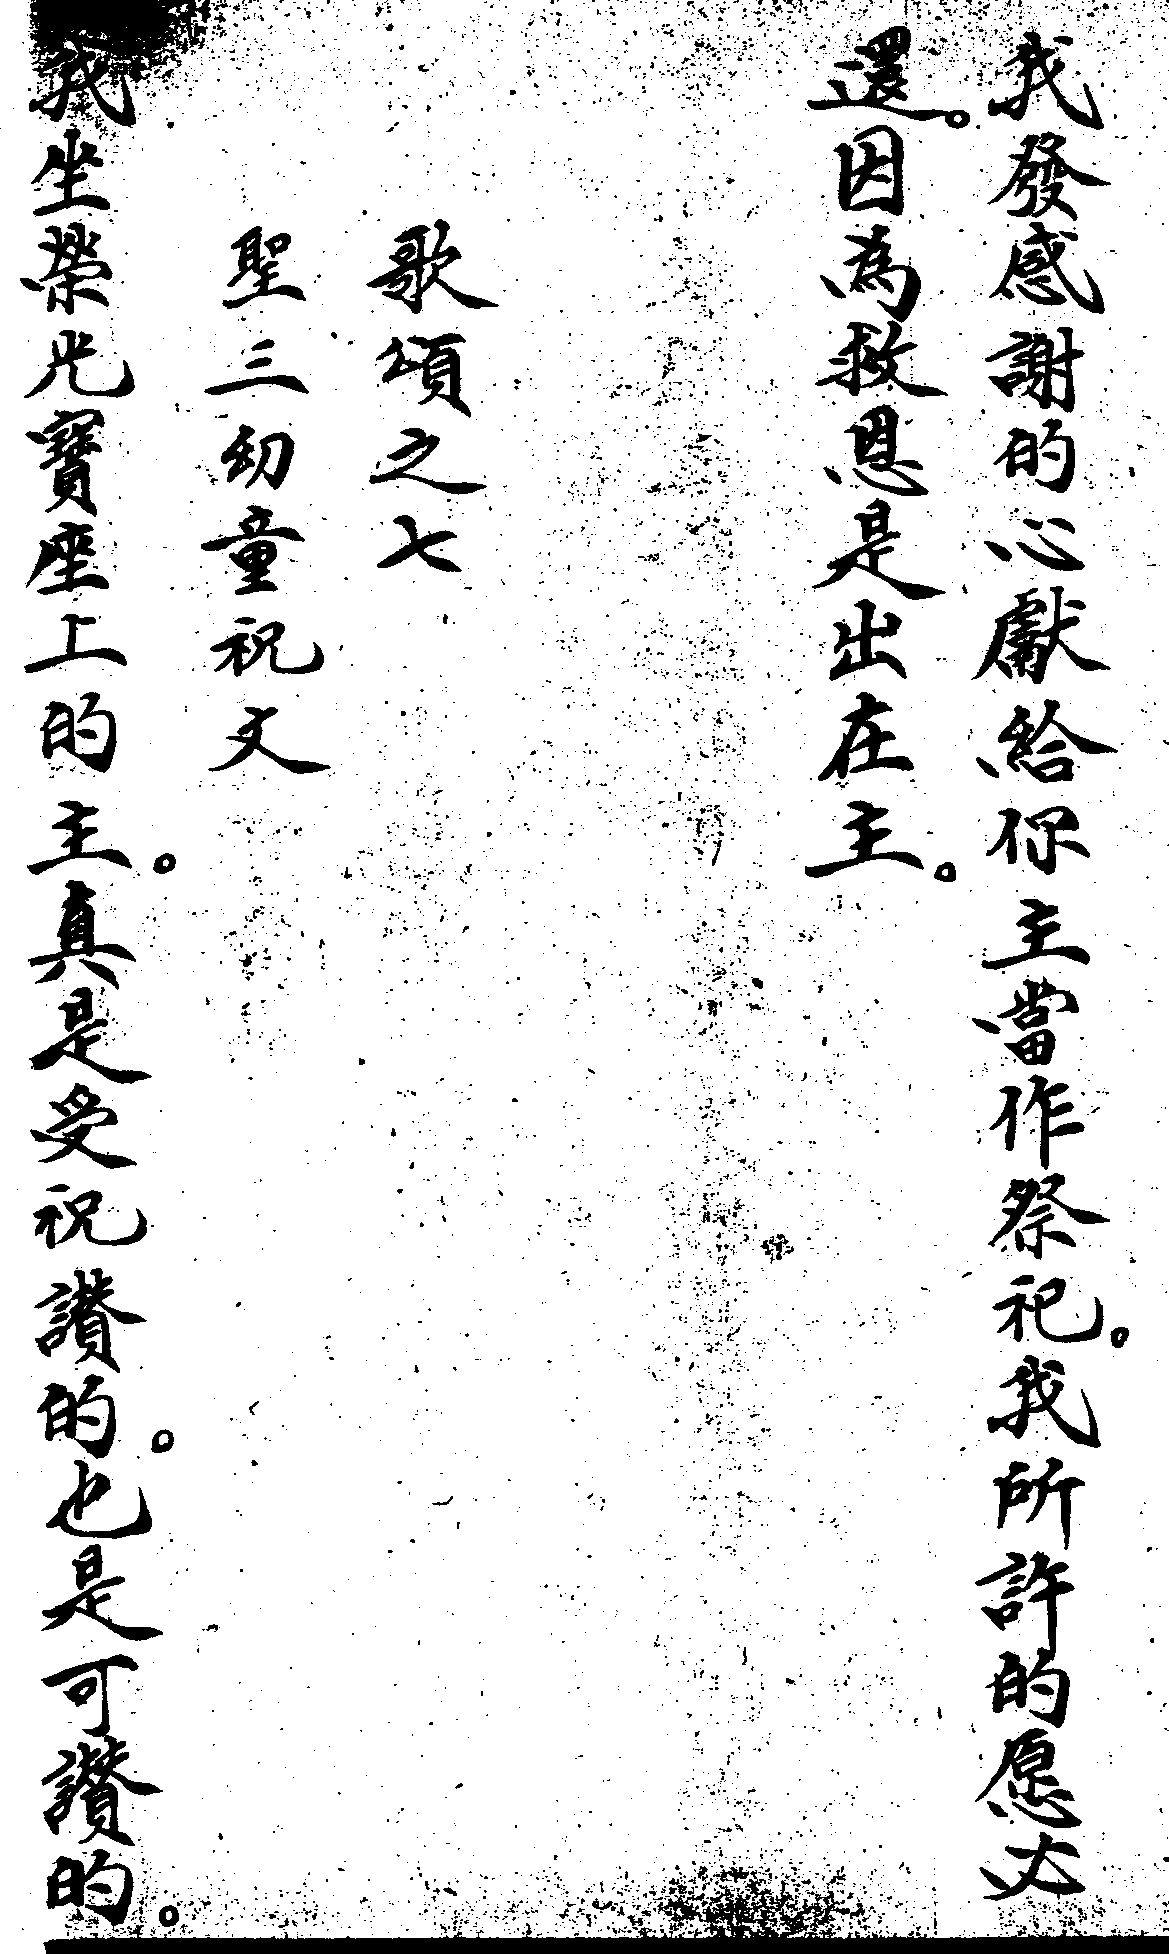 我發感謝的心獻給你主當作祭祀。我所許的愿必
還。因為救恩是出在主。
歌頌之七
聖三幼童祝文
我坐榮光寶座上的主。真是受祝讚的。也是可讚的。